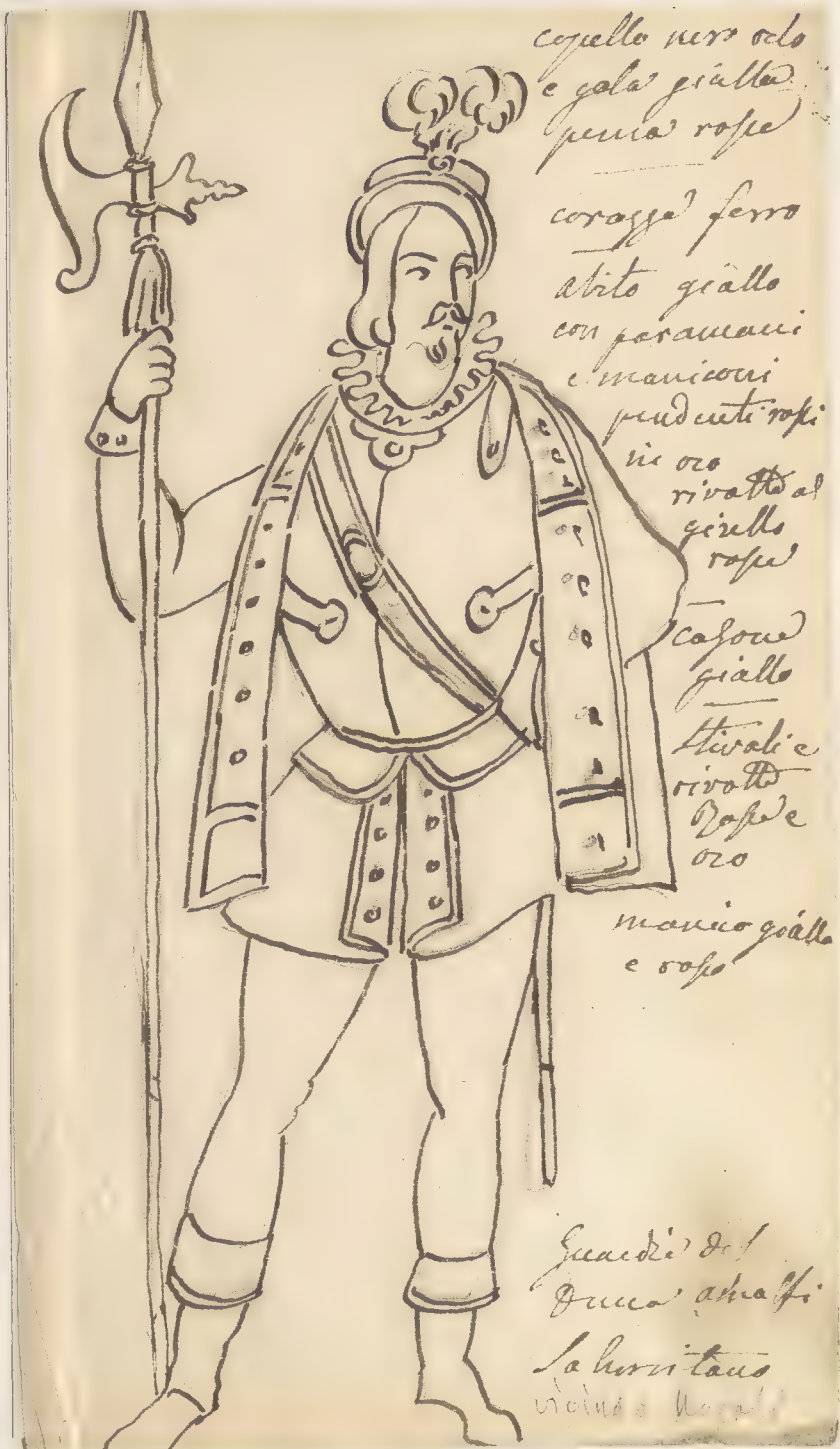 capello nero oro
e gola gialla
penna rosse
corazze ferro
abito giallo
con paramani
e maniconi
pendenti rossi
in oro
rivolte al
girello
rosse
calzone
giallo
stivali e
rivolte
Rosse e
oro
manico giallo
e rosso
Guardie del
Duca amalfi
Salernitano